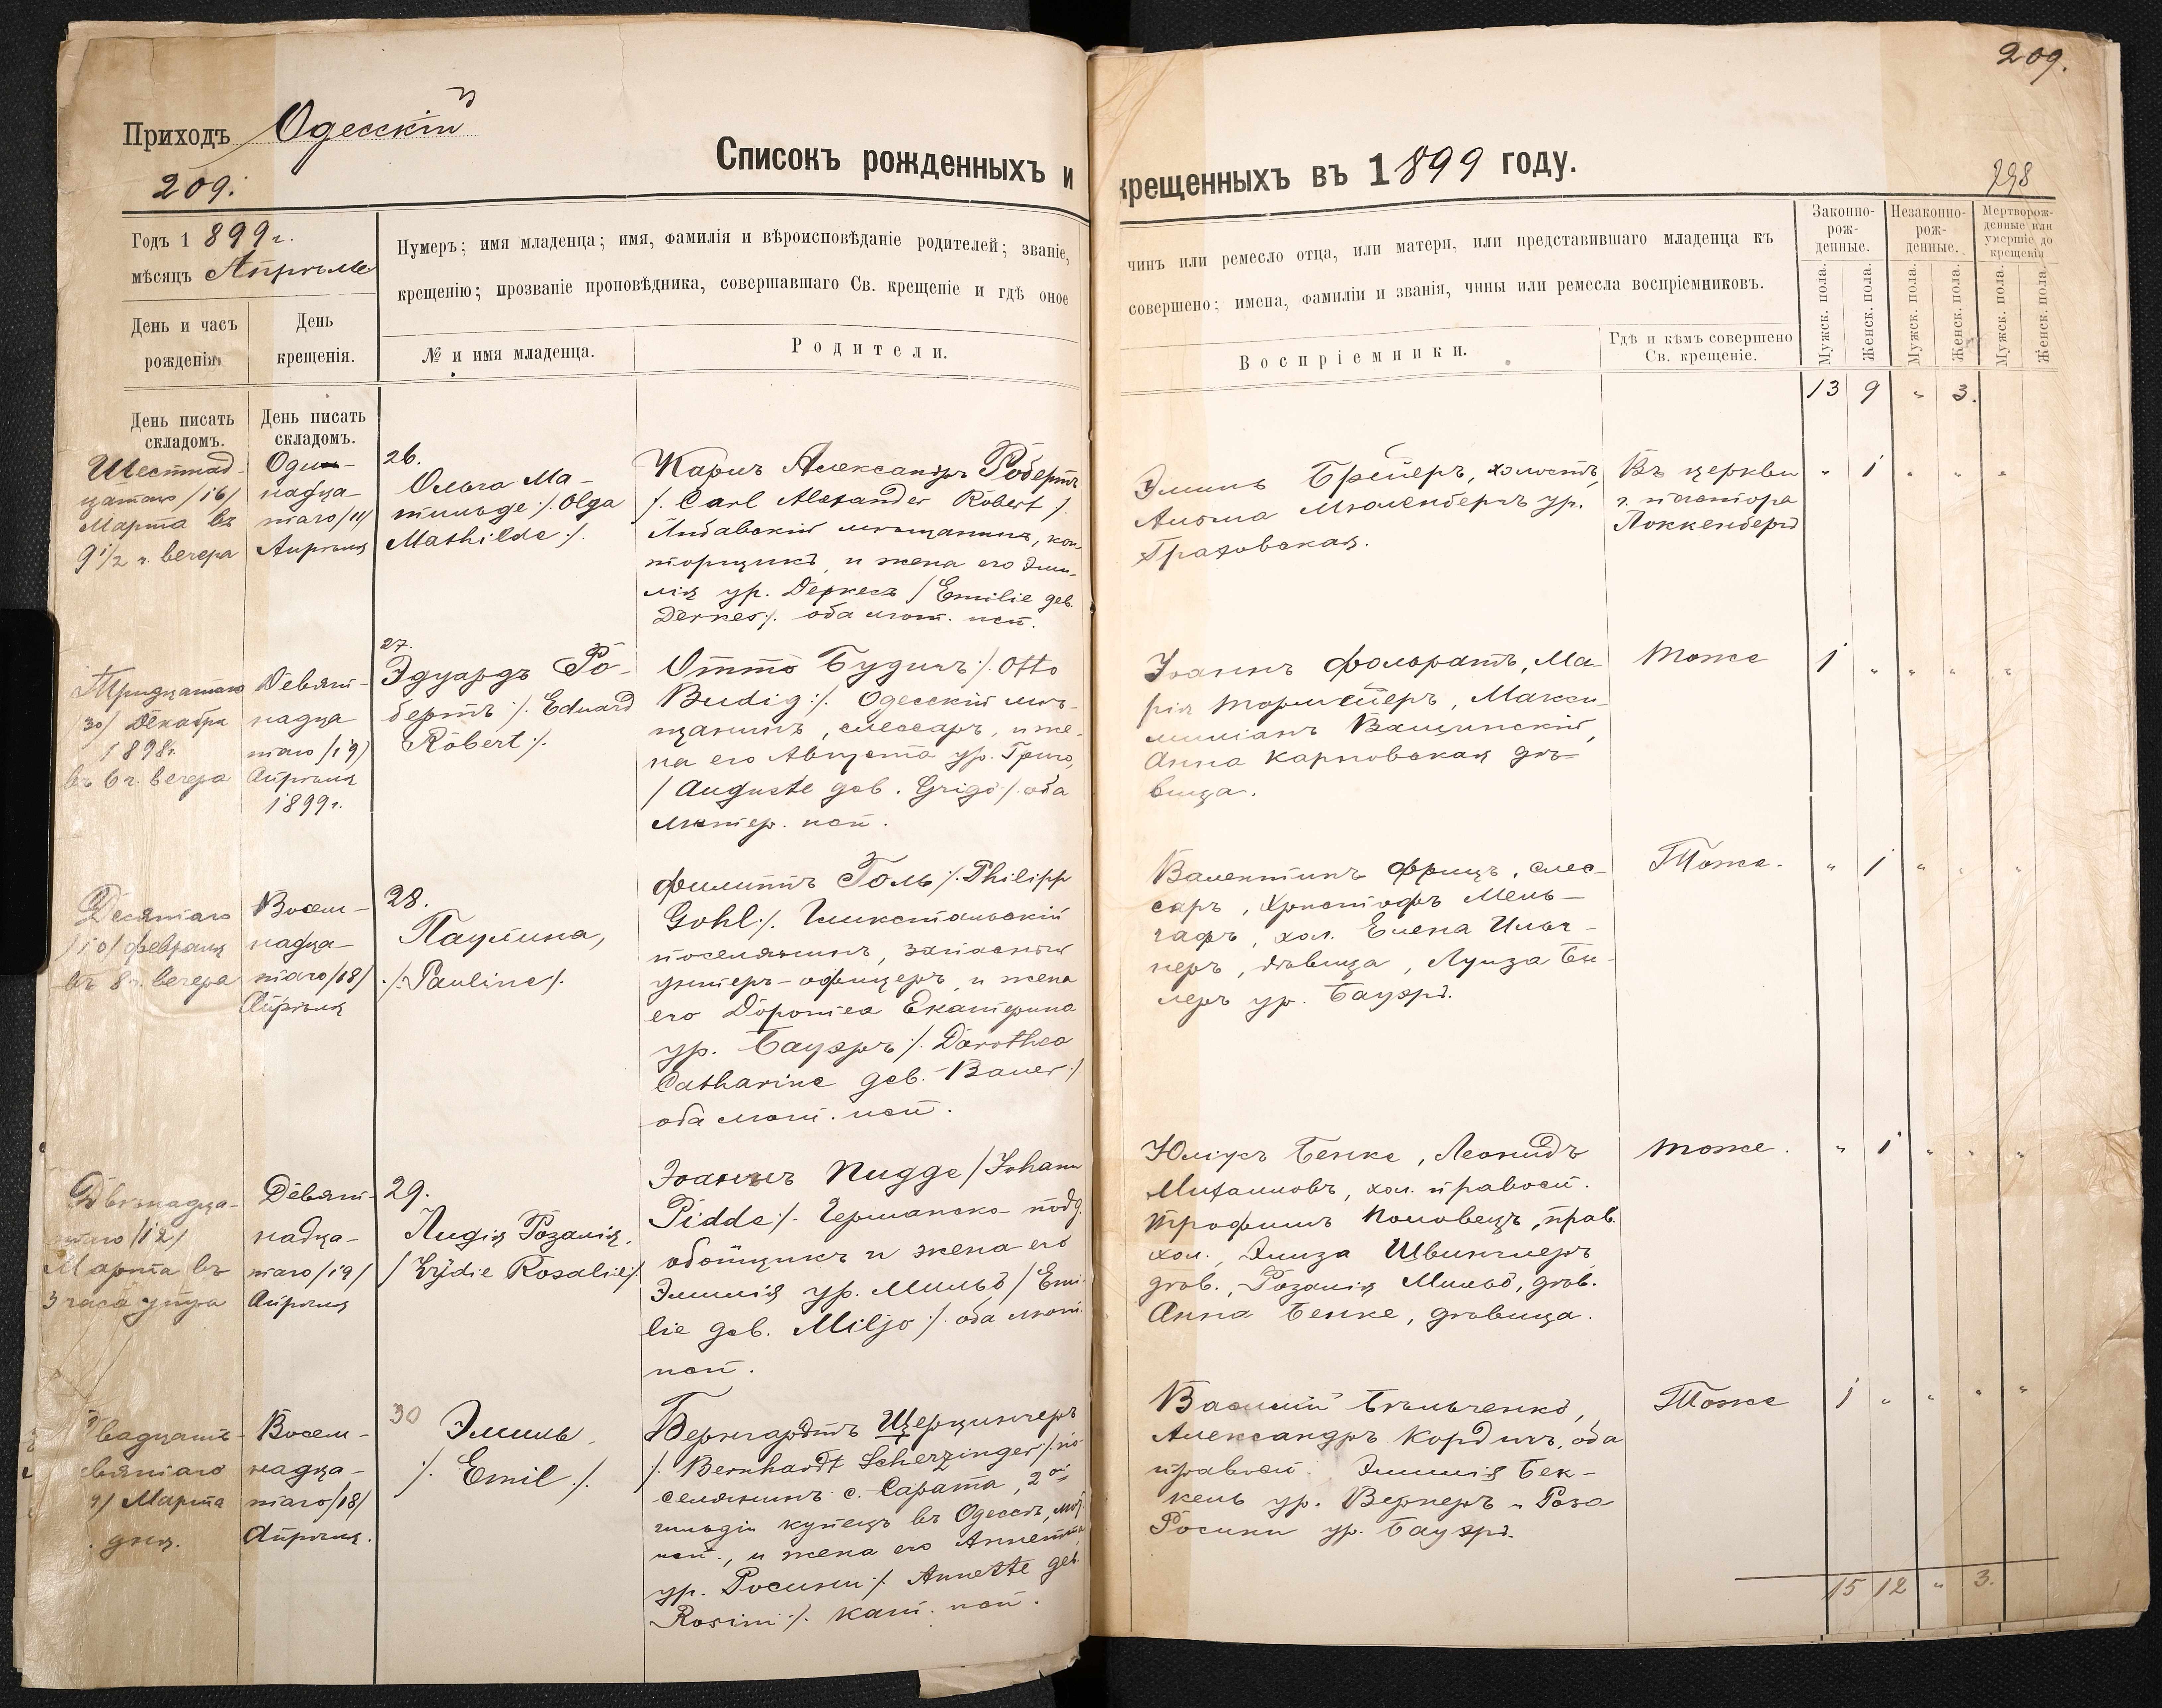 209.
Приходъ Одесскій
209.
Списокъ рожденныхъ и крещенныхъ въ 1899 году.
298
Годъ 1899 г.
мѣсяцъ Апрѣль
День и часъ
рожденія.
День
крещенія.
Нумеръ; имя младенца; имя, фамилія и вѣроисповѣданіе родителей; званіе,
крещенію; прозваніе проповѣдника, совершавшаго Св. крещеніе и гдѣ оное
№ и имя младенца.
Родители.
чинъ или ремесло отца, или матери, или представившаго младенца къ
совершено; имена, фамиліи и званія, чины или ремесла воспріемниковъ.
Воспріемники.
Гдѣ и кѣмъ совершено
Св. крещеніе.
Законно-
рож-
денные.
Незаконно-
рож-
денные.
Мертворож-
денные или
умершіе до
крещенія
Мужск. пола.
Женск. пола.
Мужск. пола.
Женск. пола.
Мужск. пола.
Женск. пола.
13 9 „ 3.
День писать
складомъ.
День писать
складомъ.
Шестнад-
цатаго /16/
Марта въ
9 1/2 ч. вечера
Один-
надца-
таго /11/
Апрѣля
26.
Ольга Ма-
тильде ./. Olga
Mathilde ./.
Карлъ Александръ Робертъ
./. Carl Alexander Robert ./.
Либавскій мѣщанинъ, кон-
торщикъ, и жена его Эми-
лія ур. Деркесъ / Emilie geb.
Derkes ./. оба лют. исп.
Эмиль Брейеръ, холостъ,
ур.
Граховская.
Въ церкви
г. пастора
Локкенбергъ
„ 1 „ „ „
Тридцатаго
/30/ Декабря
1898 г.
въ 6 ч. вечера
Девят-
надца-
таго /19/
Апрѣля
1899 г.
27.
Эдуардъ Ро-
бертъ ./. Eduard
Robert ./.
Отто Будигъ ./. Otto
Budig ./. Одесскій мѣ-
щанинъ, слесарь, и же-
на его Августа ур. Григо,
/ Auguste geb. Grigo ./. оба
лютер. исп.
Іоаннъ Фольратъ, Ма-
рія Тормейеръ, Макси-
миліанъ Ващинскій,
Анна Карповская дѣ-
вица.
Тоже
1 „ „ „ „
Десятаго
/10/ Февраля
въ 8 ч. вечера
Восем-
надца-
таго /18/
Апрѣля
28.
Паулина,
./. Pauline ./.
Филиппъ Голь ./. Philipp
Gohl ./. Гликстальскій
поселянинъ, запасный
унтеръ-офицеръ, и жена
его Доротеа Екатерина
ур. Бауэръ ./. Dorothea
Catharine geb. Bauer ./.
оба лют. исп.
Валентинъ Фрицъ, слес-
сарь, Христофъ Мель-
гафъ, хол. Елена Ильг-
неръ, дѣвица, Луиза Би-
леръ ур. Бауэръ.
Тоже.
„ 1 „ „ „
Двѣнадца-
таго /12/
Марта въ
3 часа утра
Девят-
надца-
таго /19/
Апрѣля
29.
Лидія Розалія,
/ Lydie Rosalie ./.
Іоаннъ Пидде / Johann
Pidde ./. Германско-подд.
обойщикъ и жена его
Эмилія ур. Мильо / Emi-
lie geb. Miljo ./. оба лют.
исп.
Юліусъ Бенке, Леонидъ
Михаиловъ, хол. правосл.
Трофимъ Половецъ, прав.
хол., Элиза Швинглеръ
дѣв., Розалія Мильо, дѣв.
Анна Бенке, дѣвица.
Тоже.
„ 1 „ „ „
Двадцать-
девятаго
9/ Марта
дня.
Восем-
надца-
таго /18/
Апрѣля.
30
Эмиль
./. Emil ./.
Бернгардтъ Щерцингеръ
./. Bernhardt Scherzinger ./. по-
селянинъ с. Сарата, 2ой
гильдіи купецъ въ Одессѣ, лют.
исп., и жена его Аннетта
ур. Росини ./. Annette geb.
Rosini ./. кат. исп.
Василій Бѣльченко,
Александръ Кординъ, оба
правосл. Эмилія Бек-
кель ур. Вернеръ и Роза
Росини ур. Бауэръ.
Тоже
1 „ „ „ „
15 12 „ 3.